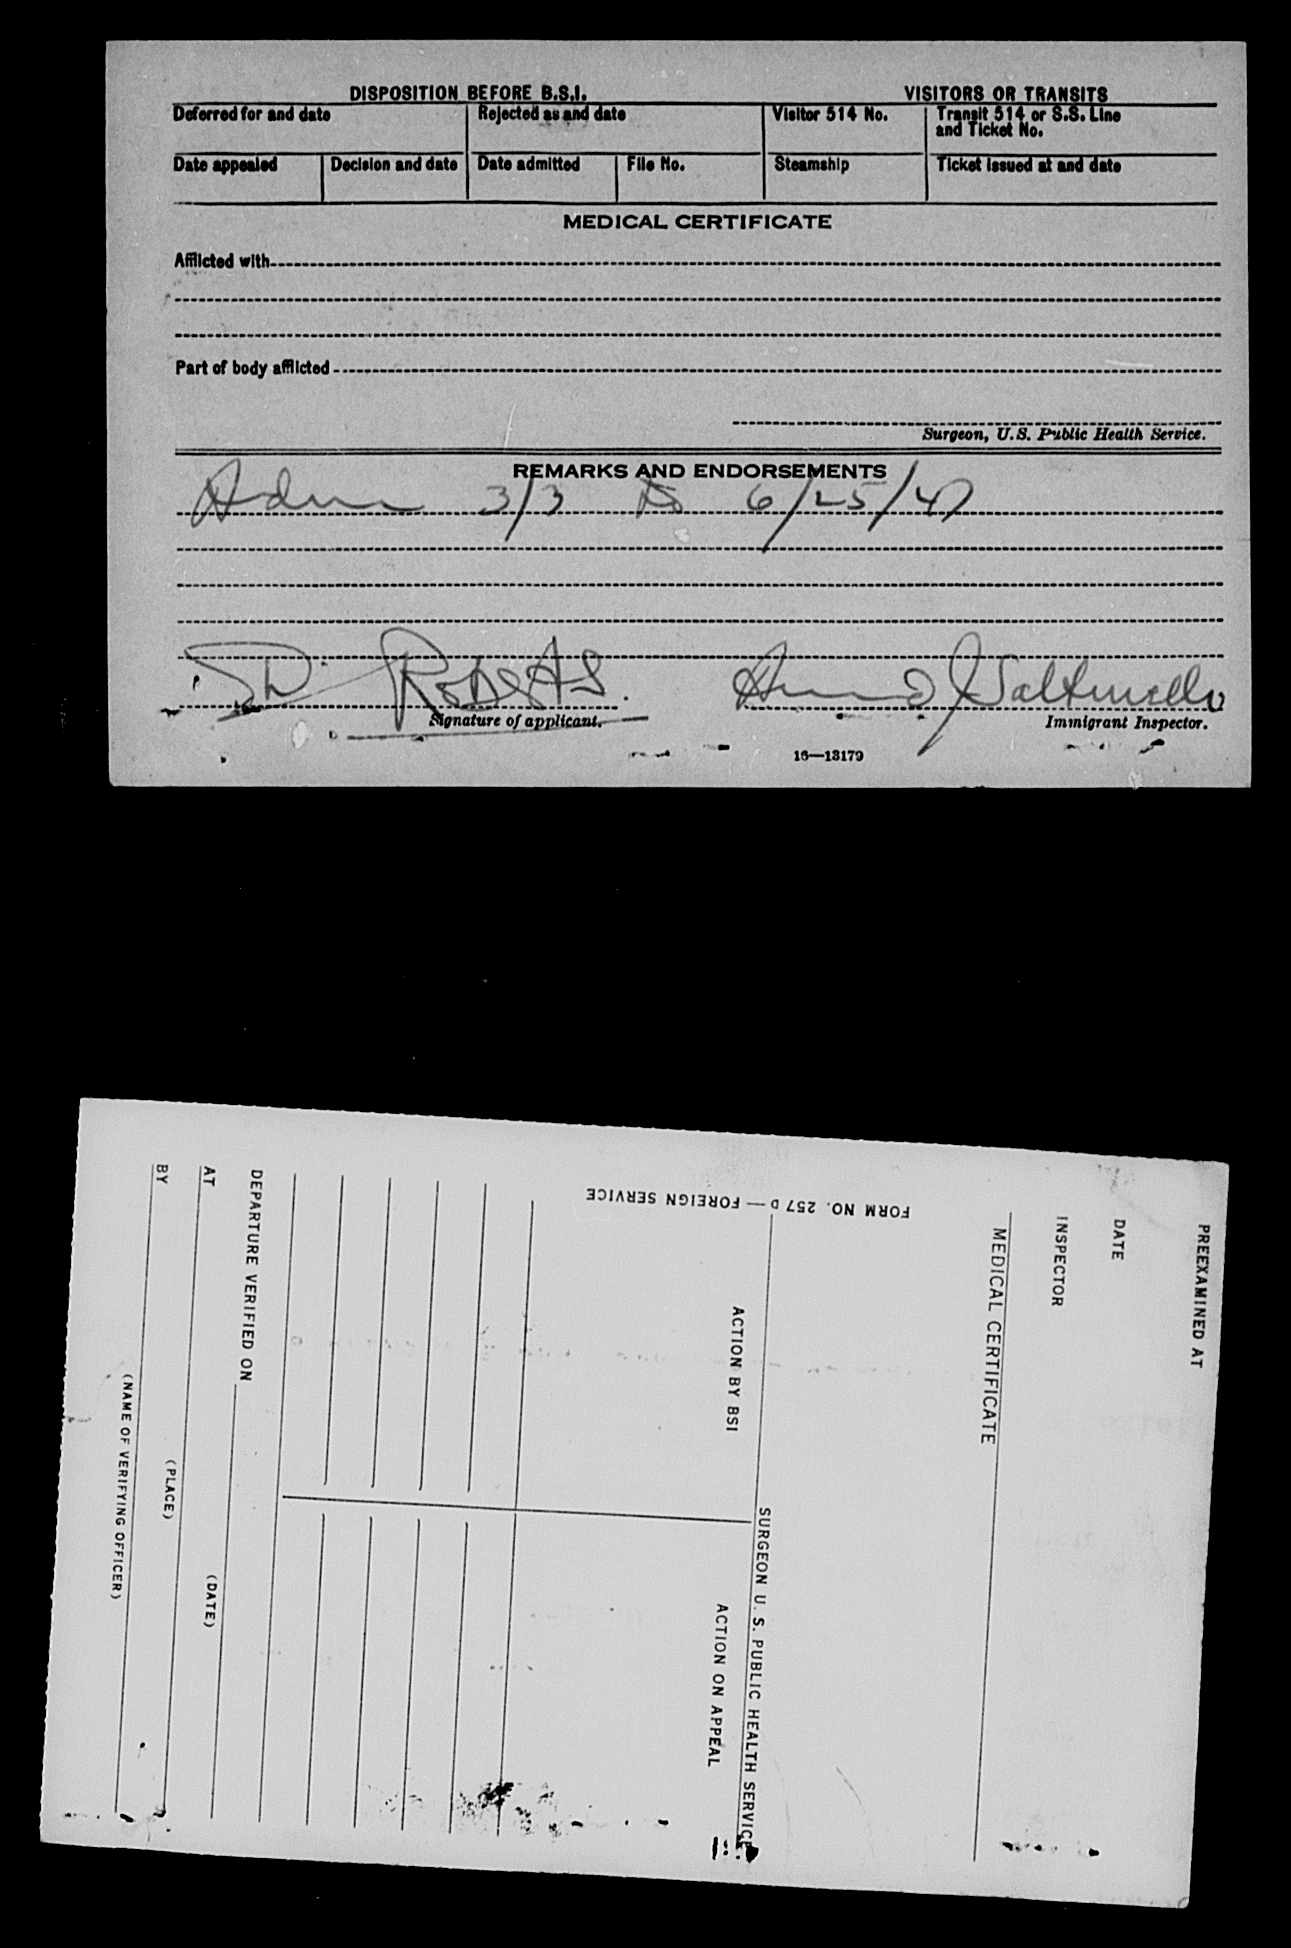 DISPOSITION BEFORE B.S.I. VISITORS OR TRANSITS
Deferred for and date Rejected as and date Visitor 514 No. Transit 514 or S.S. Line and Ticket No.
Date appealed Decision and date Date admitted File No. Steamship Ticket issued at and date
MEDICAL CERTIFICATE
Afflicted with
Part of body afflicted
Surgeon, U.S. Public Health Service.
REMARKS AND ENDORSEMENTS
Adm 3/3 to 6/25/47
Roberts.
Signature of applicant. Immigrant Inspector.
16—13179
PREEXAMINED AT
DATE
INSPECTOR
MEDICAL CERTIFICATE
FORM NO. 257 D — FOREIGN SERVICE
SURGEON U. S. PUBLIC HEALTH SERVICE
ACTION BY BSI ACTION ON APPEAL
DEPARTURE VERIFIED ON
(DATE)
AT
(PLACE)
BY
(NAME OF VERIFYING OFFICER)